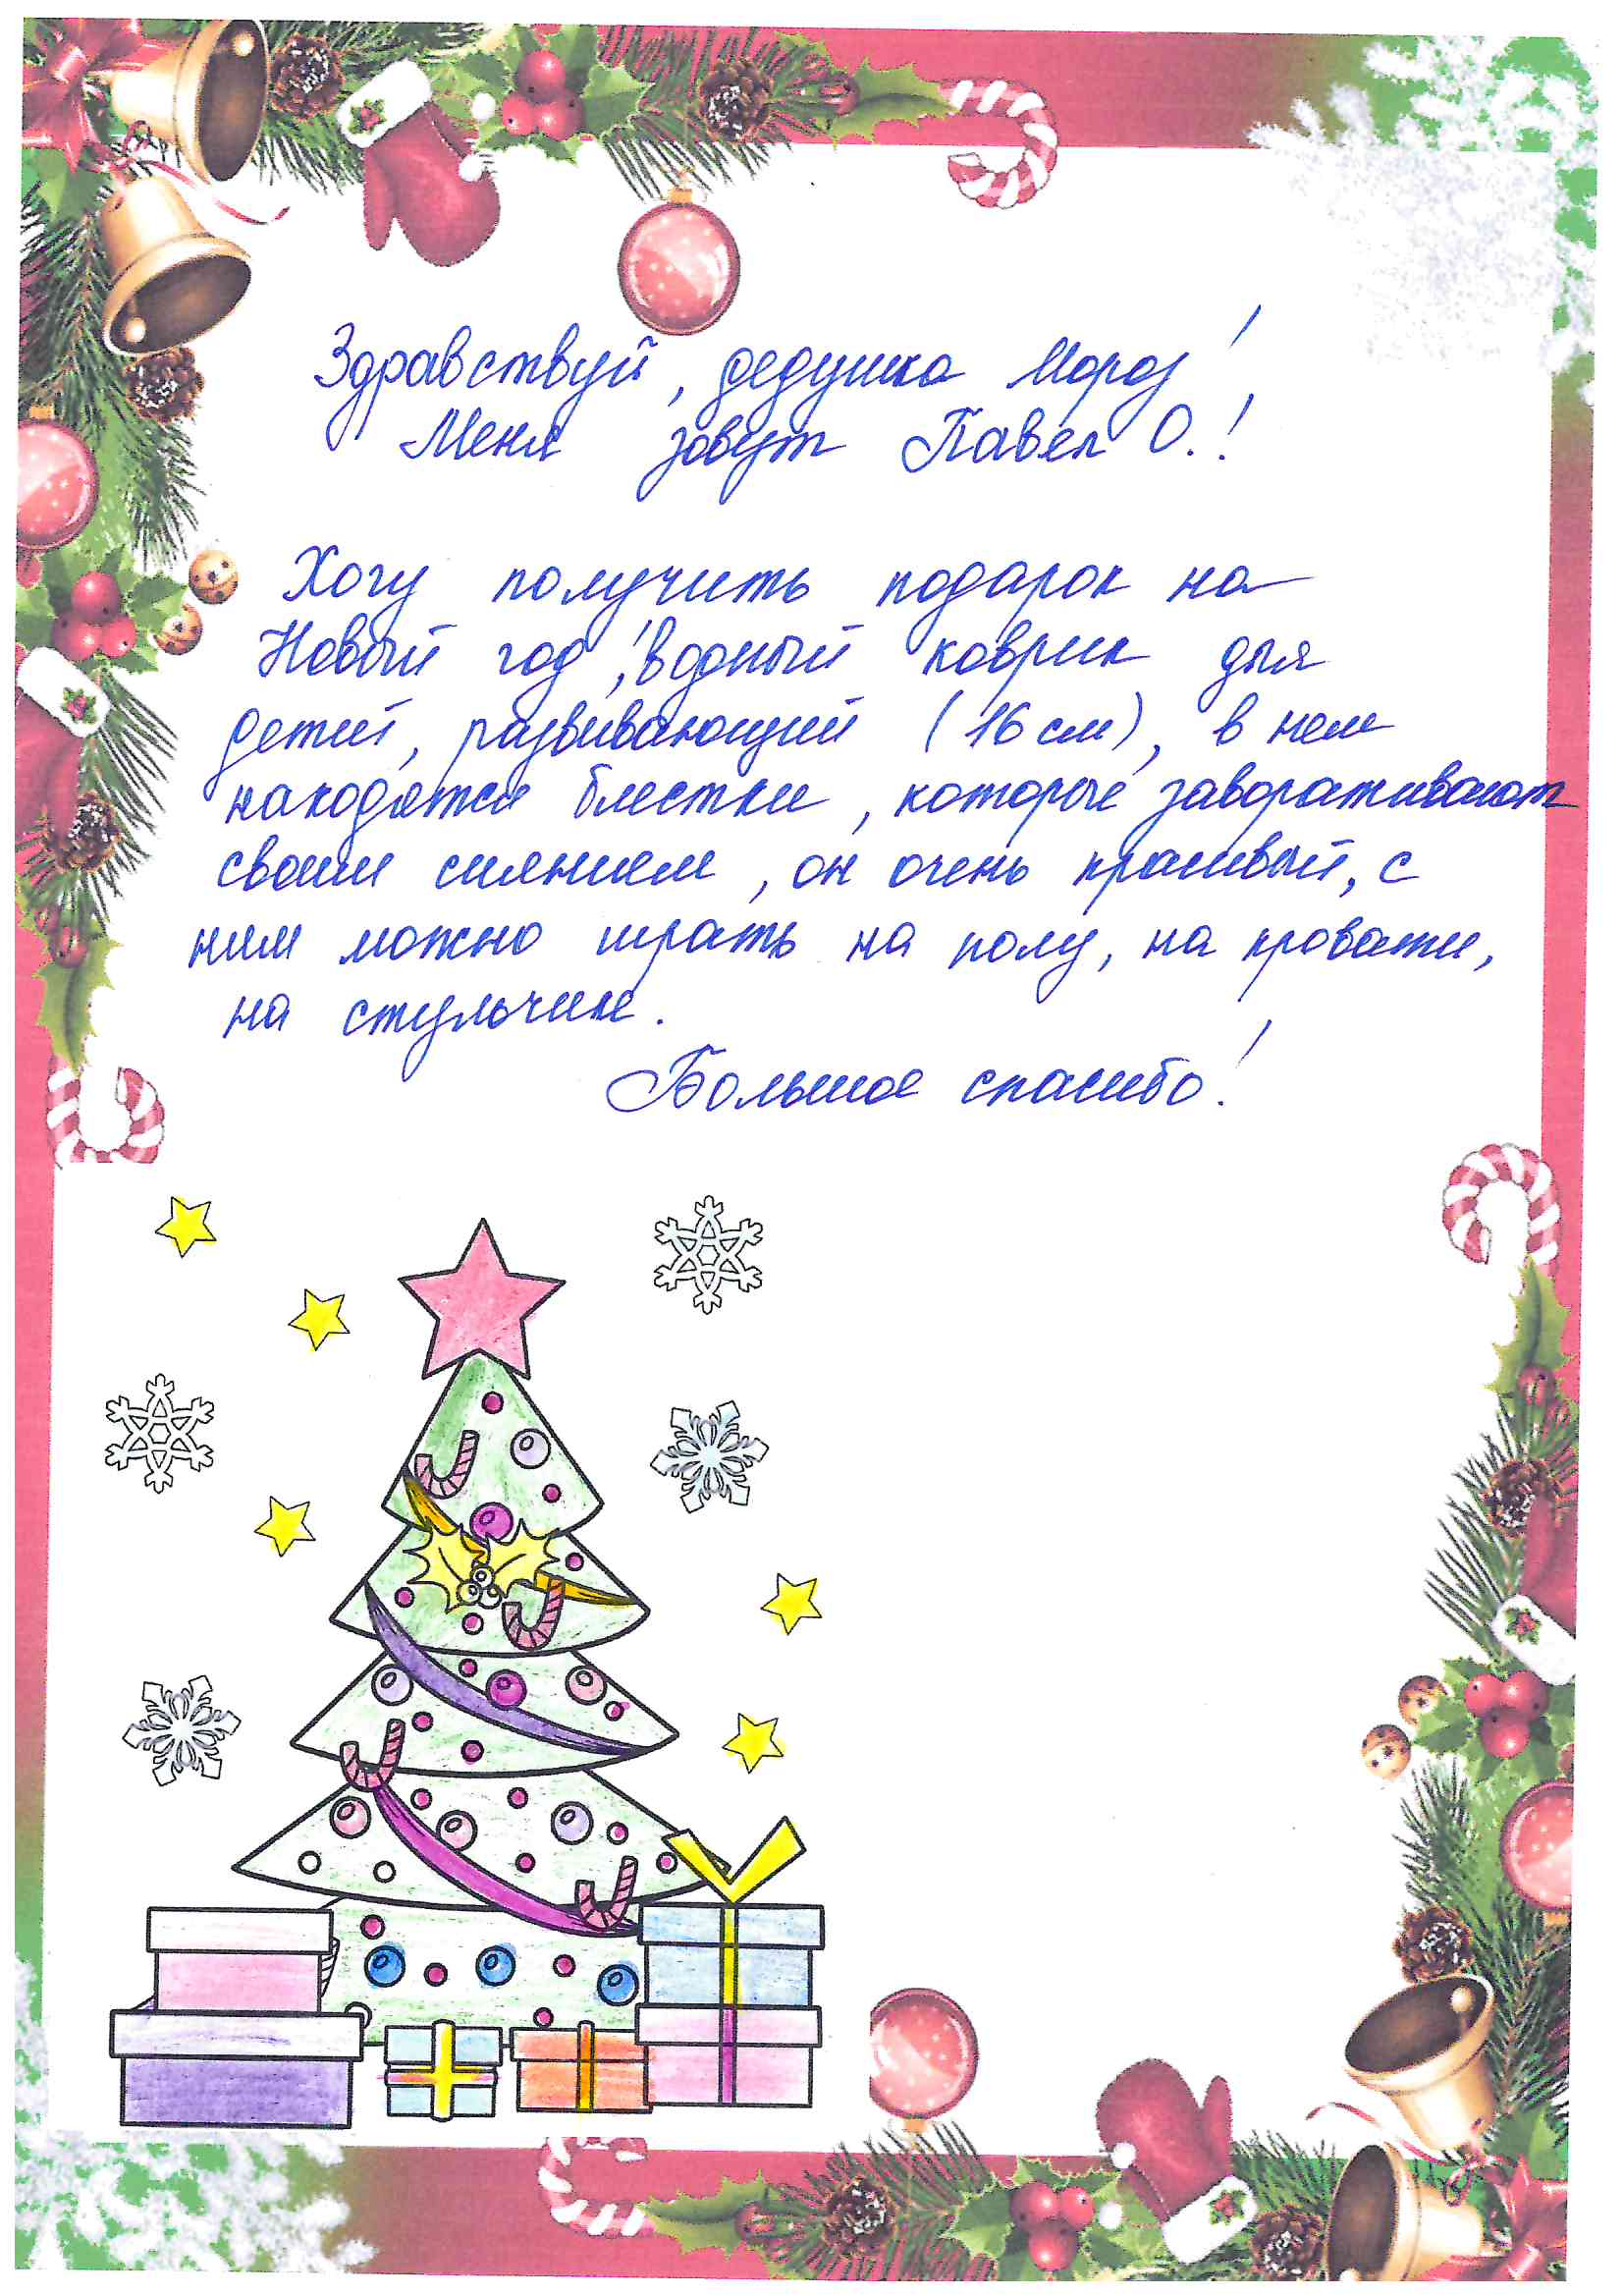 Здравствуй, дедушка Мороз!
Меня зовут Павел О.!
Хочу получить подарок на
Новый год, водный коврик для
детей, развивающий (16 см), в нем
находятся блестки, которые завораживают
своим сиянием, он очень красивый, с
ним можно играть на полу, на кровати,
на стульчике.
Большое спасибо!